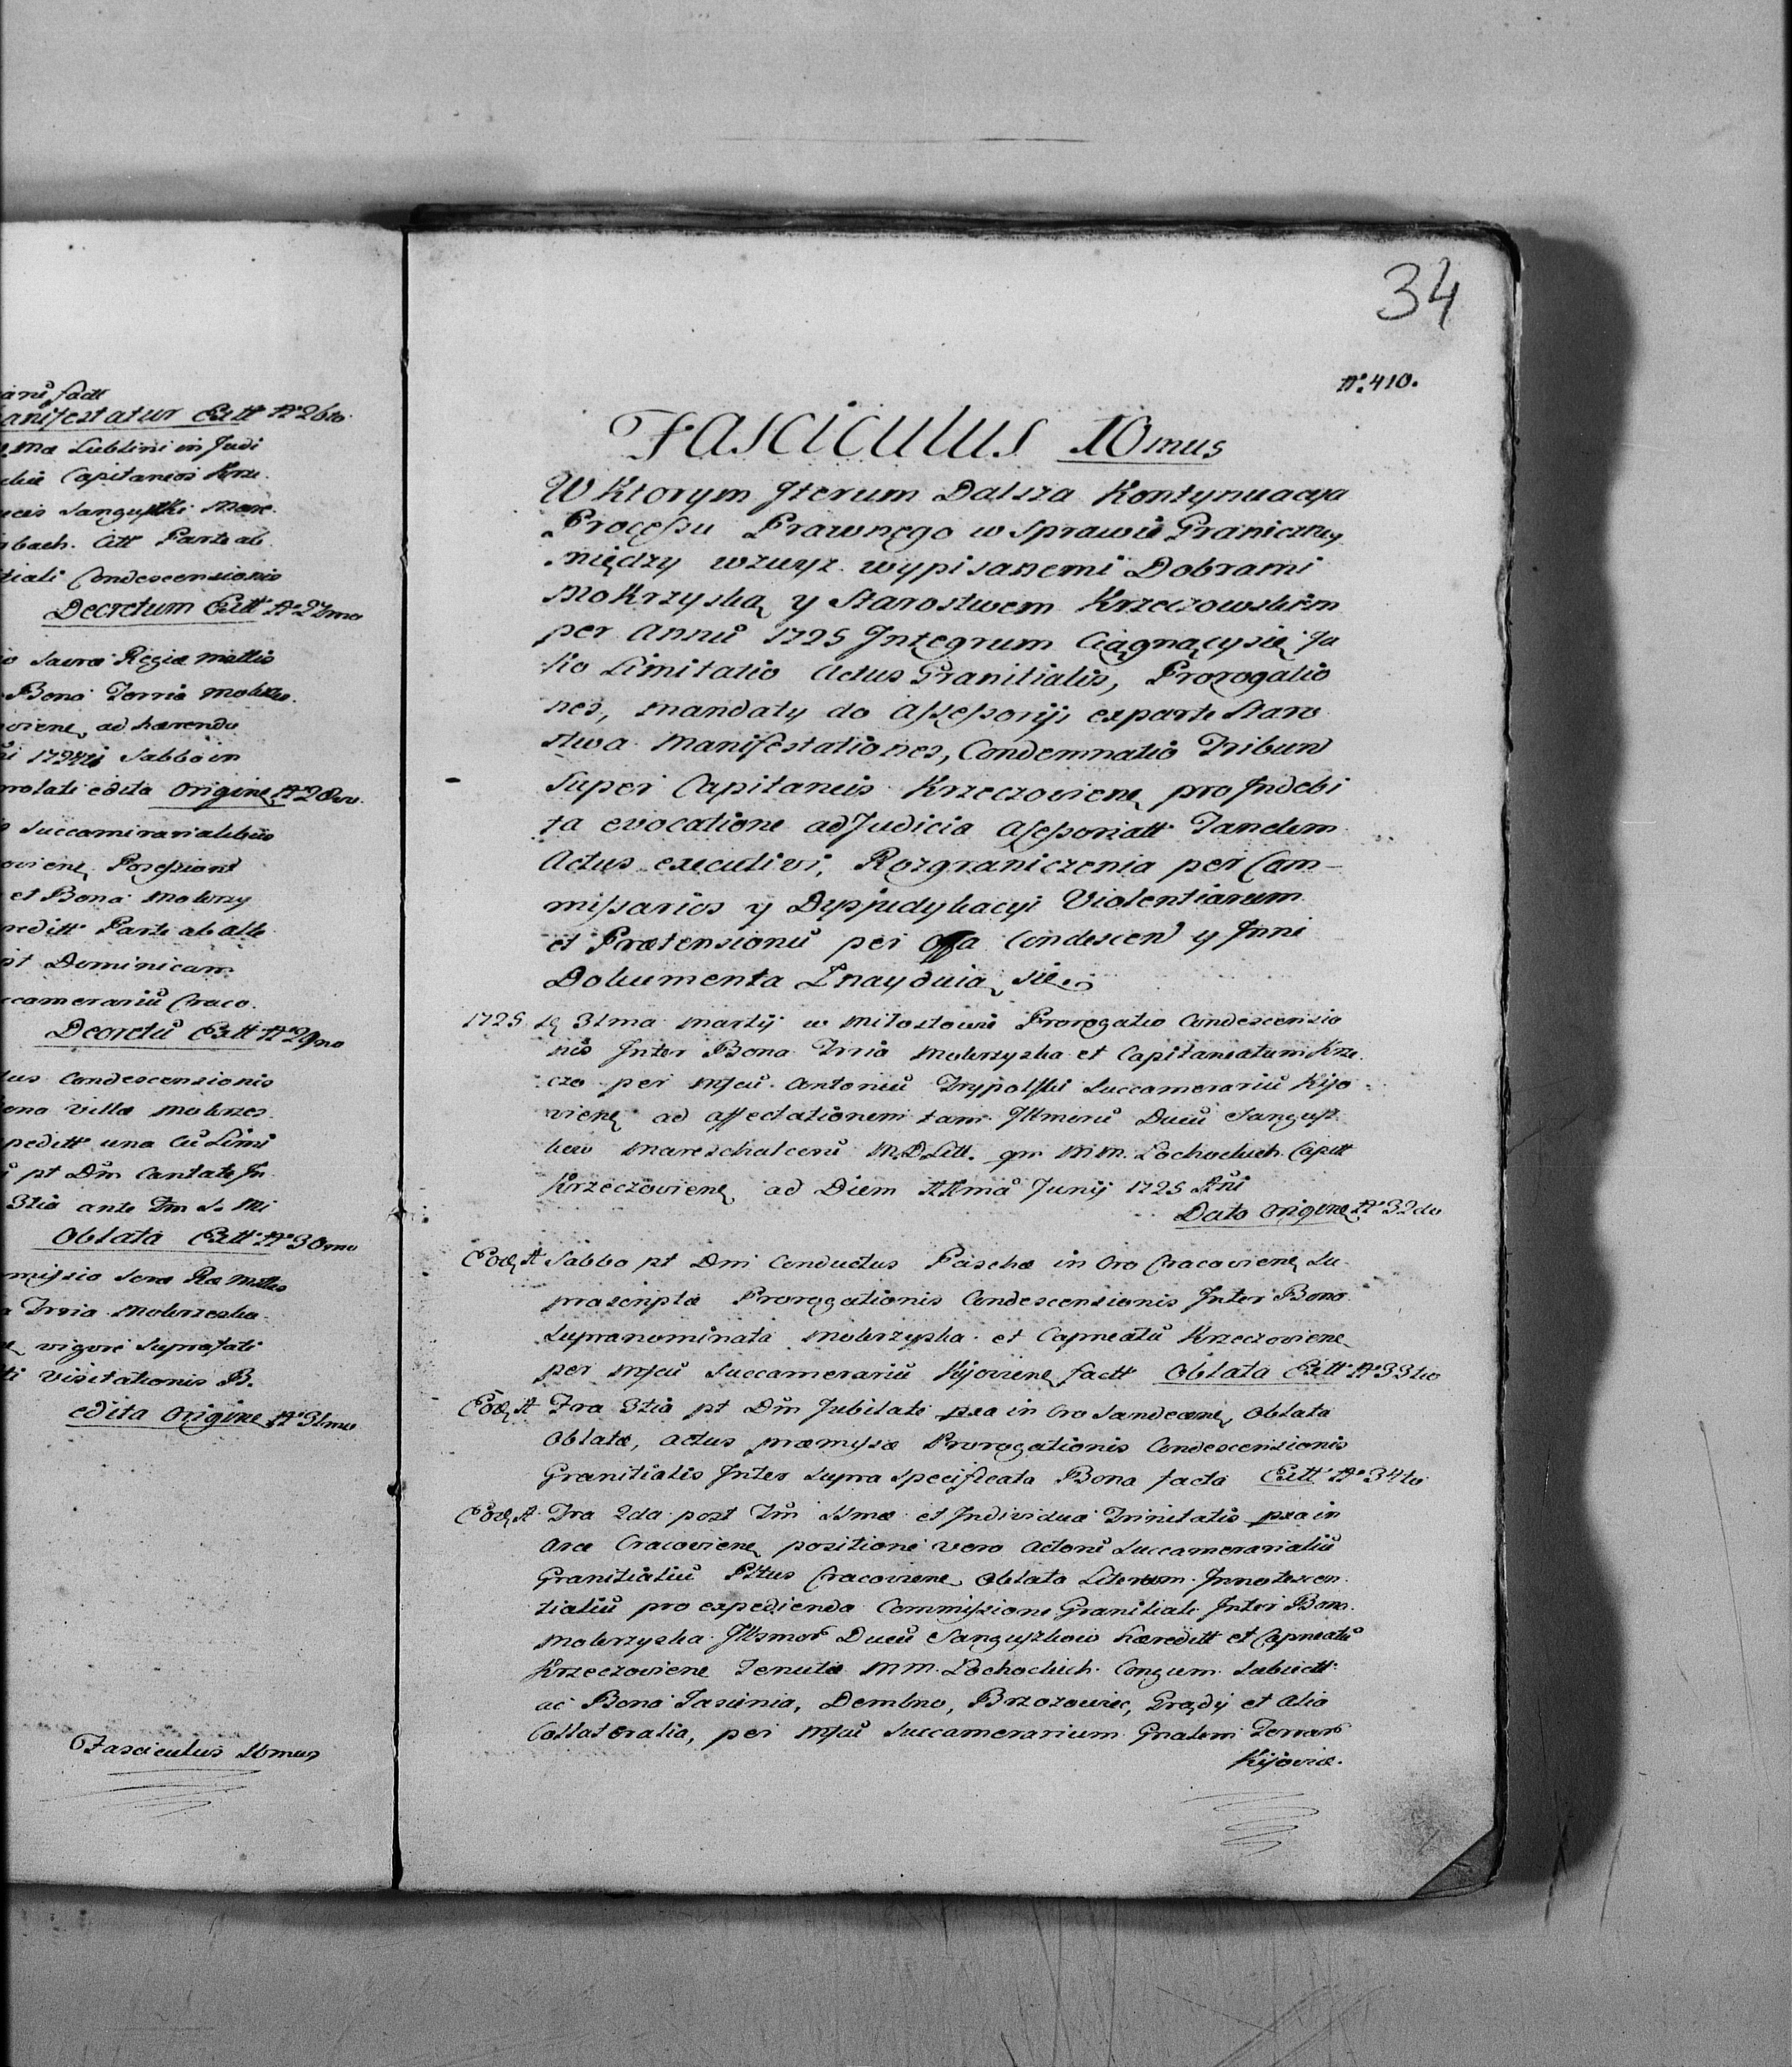 anû factt
anifestatur Extt Nº 26to
ma Lublini in Judi
Capitaneos Krze.
ducis Sanguszki Mare.
bach. Citt Parte ab
tiali Condescensionis
Decretum Extt Nº 27mo
io Sacræ Regiæ Mattis
Bona Terria Mokrze.
oviens ad hærendo
Sabbo in
prolati edita Origine Nº 28vo
Succamerarialibus
oviens Possessiond
et Bona Mokrzy
reditt Parte ab alte
pt Dominicam
ccamerariû Craco.
Decretû Extt Nº 29no
tus Condescensionis
ona villæ Mokrzes
peditt una cû Limi
pt Dm̃ Cantate in
3tia ante Fm S. Mi
Oblata Extt Nº 30mo
missio Sacræ Ræ Mttis
a Trria Mokrzeska
vigore Suprafati
ti Visitationis B.
edita Origine Nº 31mo
Fasciculus
34
Nº 410.
Fasciculus 10mus
W Ktorym Iterum Dalsza Kontynuacya
Processu Prawnego w Sprawie Graniczney
między wzwyz wypisanemi Dobrami
Mokrzyską y Starostwem Krzeczowskim
per Annû 1725 Integrum Ciągnący się Ja
ko Limitatio Actus Granitialis, Prorogatio
nes, Mandaty do Assessoryi ex parte Staro
stwa Manifestationes, Condemnatio Tribund
Super Capitaneis Krzeczoviens pro Indebi
ta evocatione ad Judicia Assessoriatt Tandem
Actus executivi, Rozgraniczenia per Com-
missarios y Dyjudykacyi Violentiarum
et Prætensionû per Offa Condescend y Inne
Dokumenta Znayduią się.
1725 Die 31ma Martij w Miłostowie Prorogatio Condescensio
nis Inter Bona Trria Mokrzyska et Capitaneatum Krze.
czo per Mfcû Antoniû Trypolski Succamerariû Kijo
viens ad affectationem tam Illmorû Ducû Sangusz
kow Mareschalcorû M.D.Litt. qm MM. Lochockich Captt
Krzeczoviens ad Diem Junij 1725 Anî
Dato Origine Nº 32do
Eod A Sabbo pt Dm̃ Conductus Paschæ in Cro Cracoviens Su
prascriptæ Prorogationis Condescensionis Inter Bona
Supranominata Mokrzyska et Capneatû Krzeczoviens
per Mfcû Succamerariû Kijoviens factt Oblata Extt Nº 33tio
Eod A Fra 3tia pt Dm̃ Jubilate pxa in Cro Sandecens Oblata
Oblatæ, Actus præmissæ Prorogationis Condescensionis
Granitialis Inter Supra Specificata Bona facta Extt Nº 34to
Eod A Fra 2da post Fm̃ SSmæ et Individuæ Trinitatis pxa in
Arce Cracoviens positione vero Actorû Succamerarialiû
Granitialiû Pttus Cracoviens Oblata Literarum Innotescen
tialiû pro expedienda Commissione Granitiali Inter Bona
Mokrzyska Illsmor Ducû Sanguszkow Hæreditt et Capneatû
Krzeczoviens Tenutæ MM. Lochockich Conjgum
ac Bona Jasienia, Dembno, Brzozowiec, Grądy et Alia
Collateralia, per Mfcû Succamerarium Gnalem Terrar
Kijoviæ.